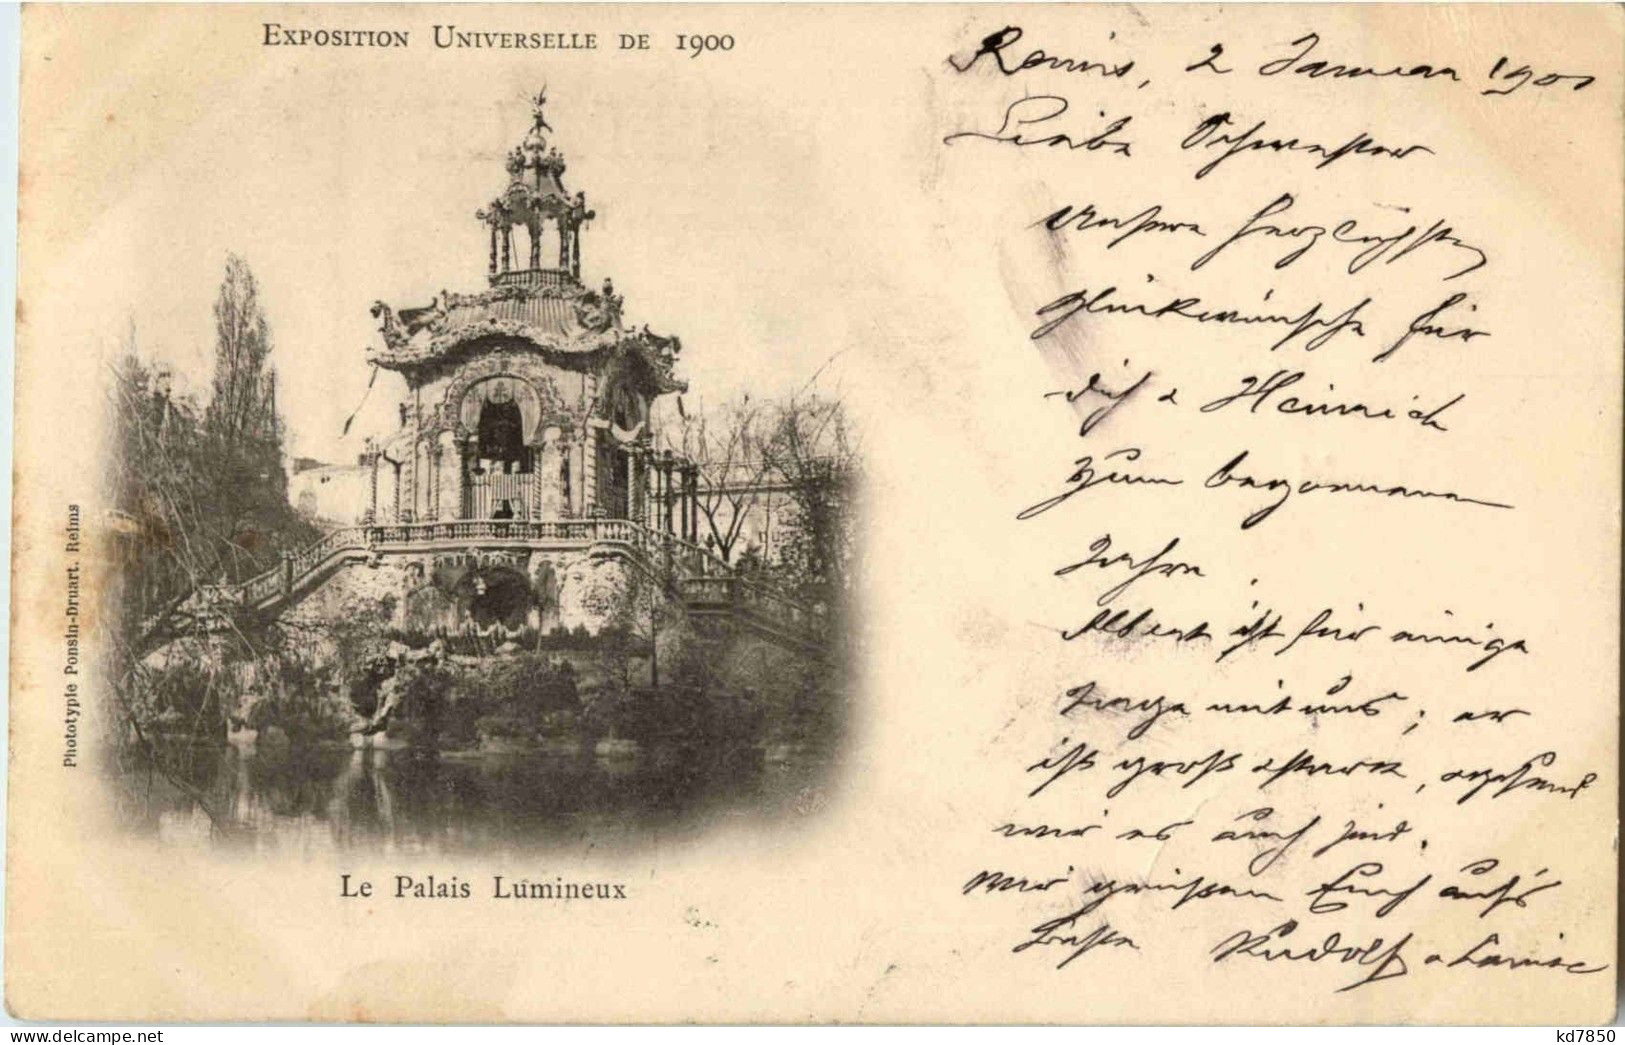 EXPOSITION UNIVERSELLE DE 1900
Reims, 2 Januar 1901
Liebe Schwester
Unsere herzlichsten
Glückwünsche für
dich & Heinrich
zum begonnenen
Jahre.
Albert ist für einige
Tage mit uns; er
ist groß & stark,
wir es auch sind.
Wir grüßen Euch auf's
Beste Rudolf &
Phototypie Ponsin-Druart. Reims
Le Palais Lumineux
kd7850